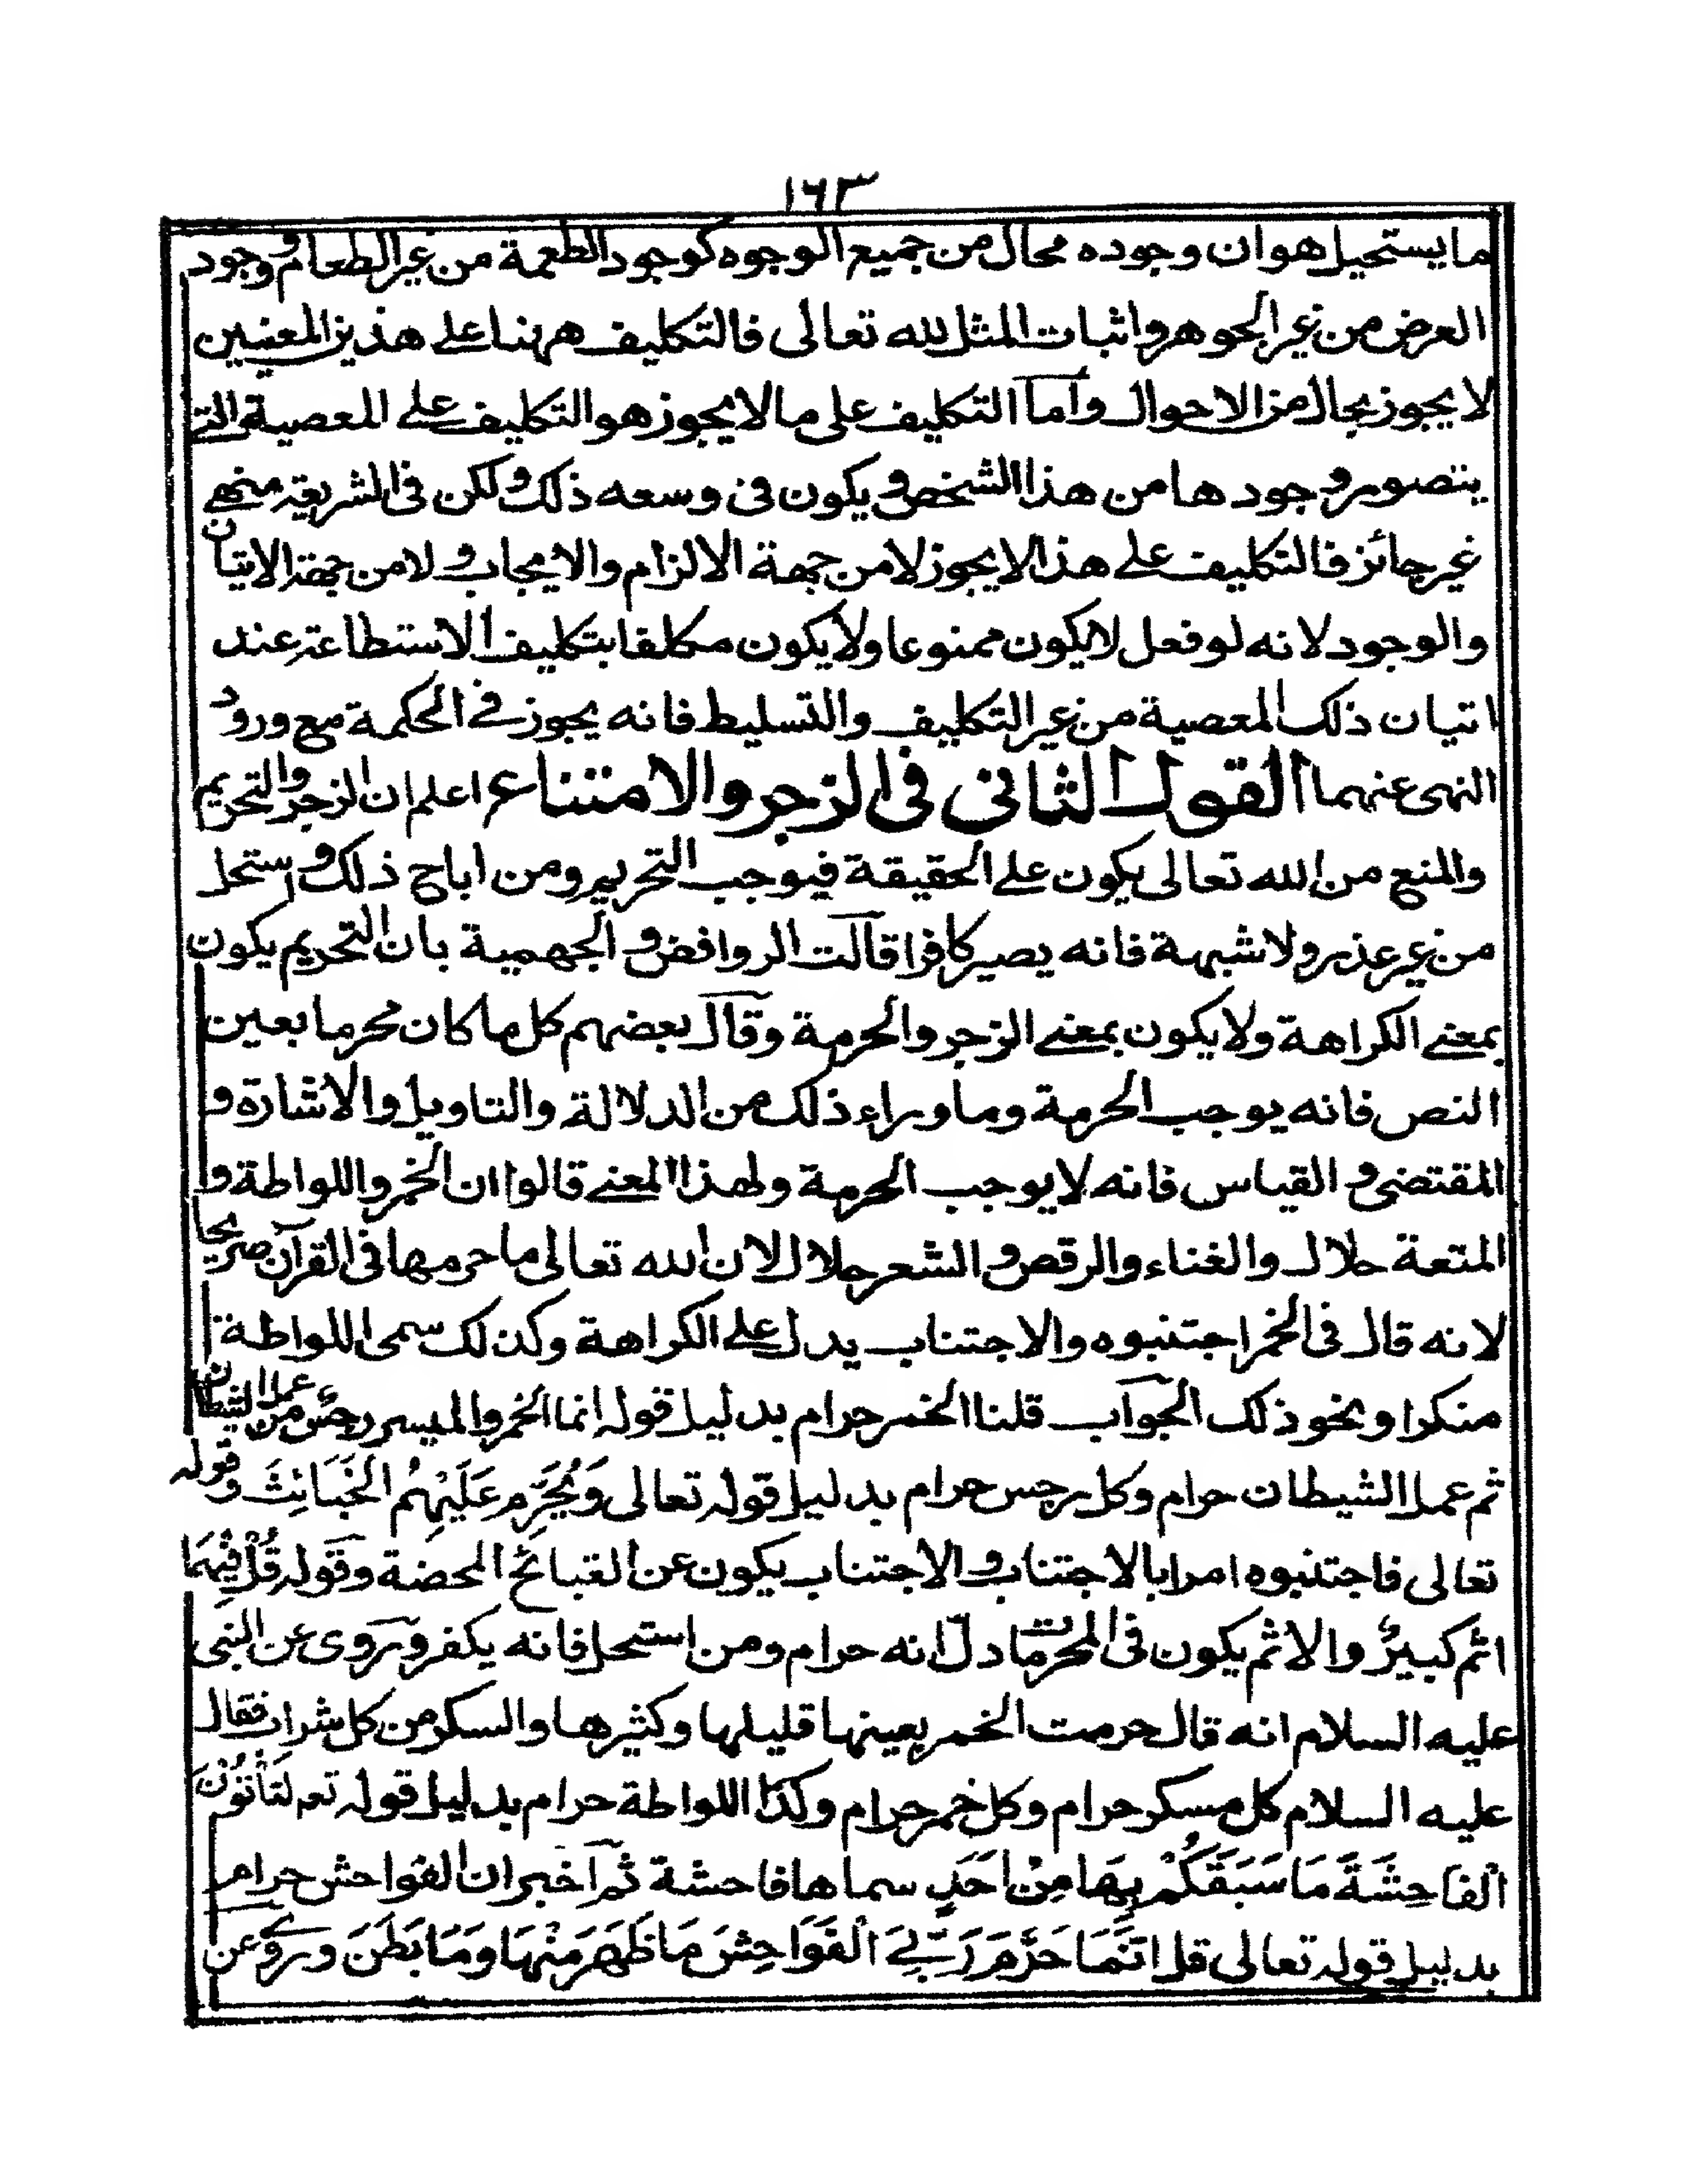 ١٦٣
ما يستحيل هو ان وجوده محال من جميع الوجوه كوجود الطعمة من غير الطعام و وجود
العرض من غير الجوهر واثبات المثل لله تعالى فالتكليف ههنا على هذين المعنيين
لا يجوز بحال من الاحوال وأما التكليف على ما لا يجوز هو التكليف على المعصية التي
يتصور وجودها من هذا الشخص و يكون في وسعه ذلك ولكن في الشريعة منهي
غير جائز فالتكليف على هذا لا يجوز لا من جهة الالزام والايجاب و لا من جهة الاتيان
والوجود لانه لو فعل لا يكون ممنوعا ولا يكون مكلفا بتكليف الاستطاعة عند
اتيان ذلك المعصية من غير التكليف والتسليط فانه يجوز في الحكمة مع ورود
النهى عنهما القول الثاني في الزجر والامتناع اعلم ان الزجر والتحريم
والمنع من الله تعالى يكون على الحقيقة فيوجب التحريم ومن اباح ذلك و استحل
من غير عذر ولا شبهة فانه يصير كافرا قالت الروافض و الجهمية بان التحريم يكون
بمعنى الكراهة ولا يكون بمعنى الزجر والحرمة وقال بعضهم كل ما كان محرما بعين
النص فانه يوجب الحرمة وما وراء ذلك من الدلالة والتاويل والاشارة و
المقتضى و القياس فانه لا يوجب الحرمة ولهذا المعنى قالوا ان الخمر واللواطة و
المتعة حلال والغناء والرقص و الشعر حلال لان الله تعالى ما حرمها في القرآن صريحا
لانه قال في الخمر اجتنبوه والاجتناب يدل على الكراهة وكذلك سمى اللواطة
منكرا ونحو ذلك الجواب قلنا الخمر حرام بدليل قوله انما الخمر والميسر رجس من عمل الشيطان
ثم عمل الشيطان حرام وكل رجس حرام بدليل قوله تعالى وَيُحَرِّم عَلَيْهِمُ الخَبَائِثَ وقوله
تعالى فاجتنبوه امر ابا لاجتناب و الاجتناب يكون عن القبائح المحضة وقوله قُلْ فِيْهِمَا
اثم كبيرٌ والاثم يكون في المحرمات دلّ انه حرام ومن استحل فانه يكفر وروى عن النبى
عليه السلام انه قال حرمت الخمر بعينها قليلها وكثيرها والسكر من كل شراب فقال
عليه السلام كل مسكر حرام وكل خمر حرام وكذا اللواطة حرام بدليل قوله تعـ لتَأْتُوْنَ
الفَاحِشَةَ مَا سَبَقَكُمْ بِهَا مِنْ اَحَدٍ سماها فاحشة ثم اخبر ان الفواحش حرام
بدليل قوله تعالى قل انَّمَا حَرَّمَ رَبِّيَ الفَوَاحِشَ مَا ظَهَرَ مِنْهَا وَمَا بَطَنَ وروى عن